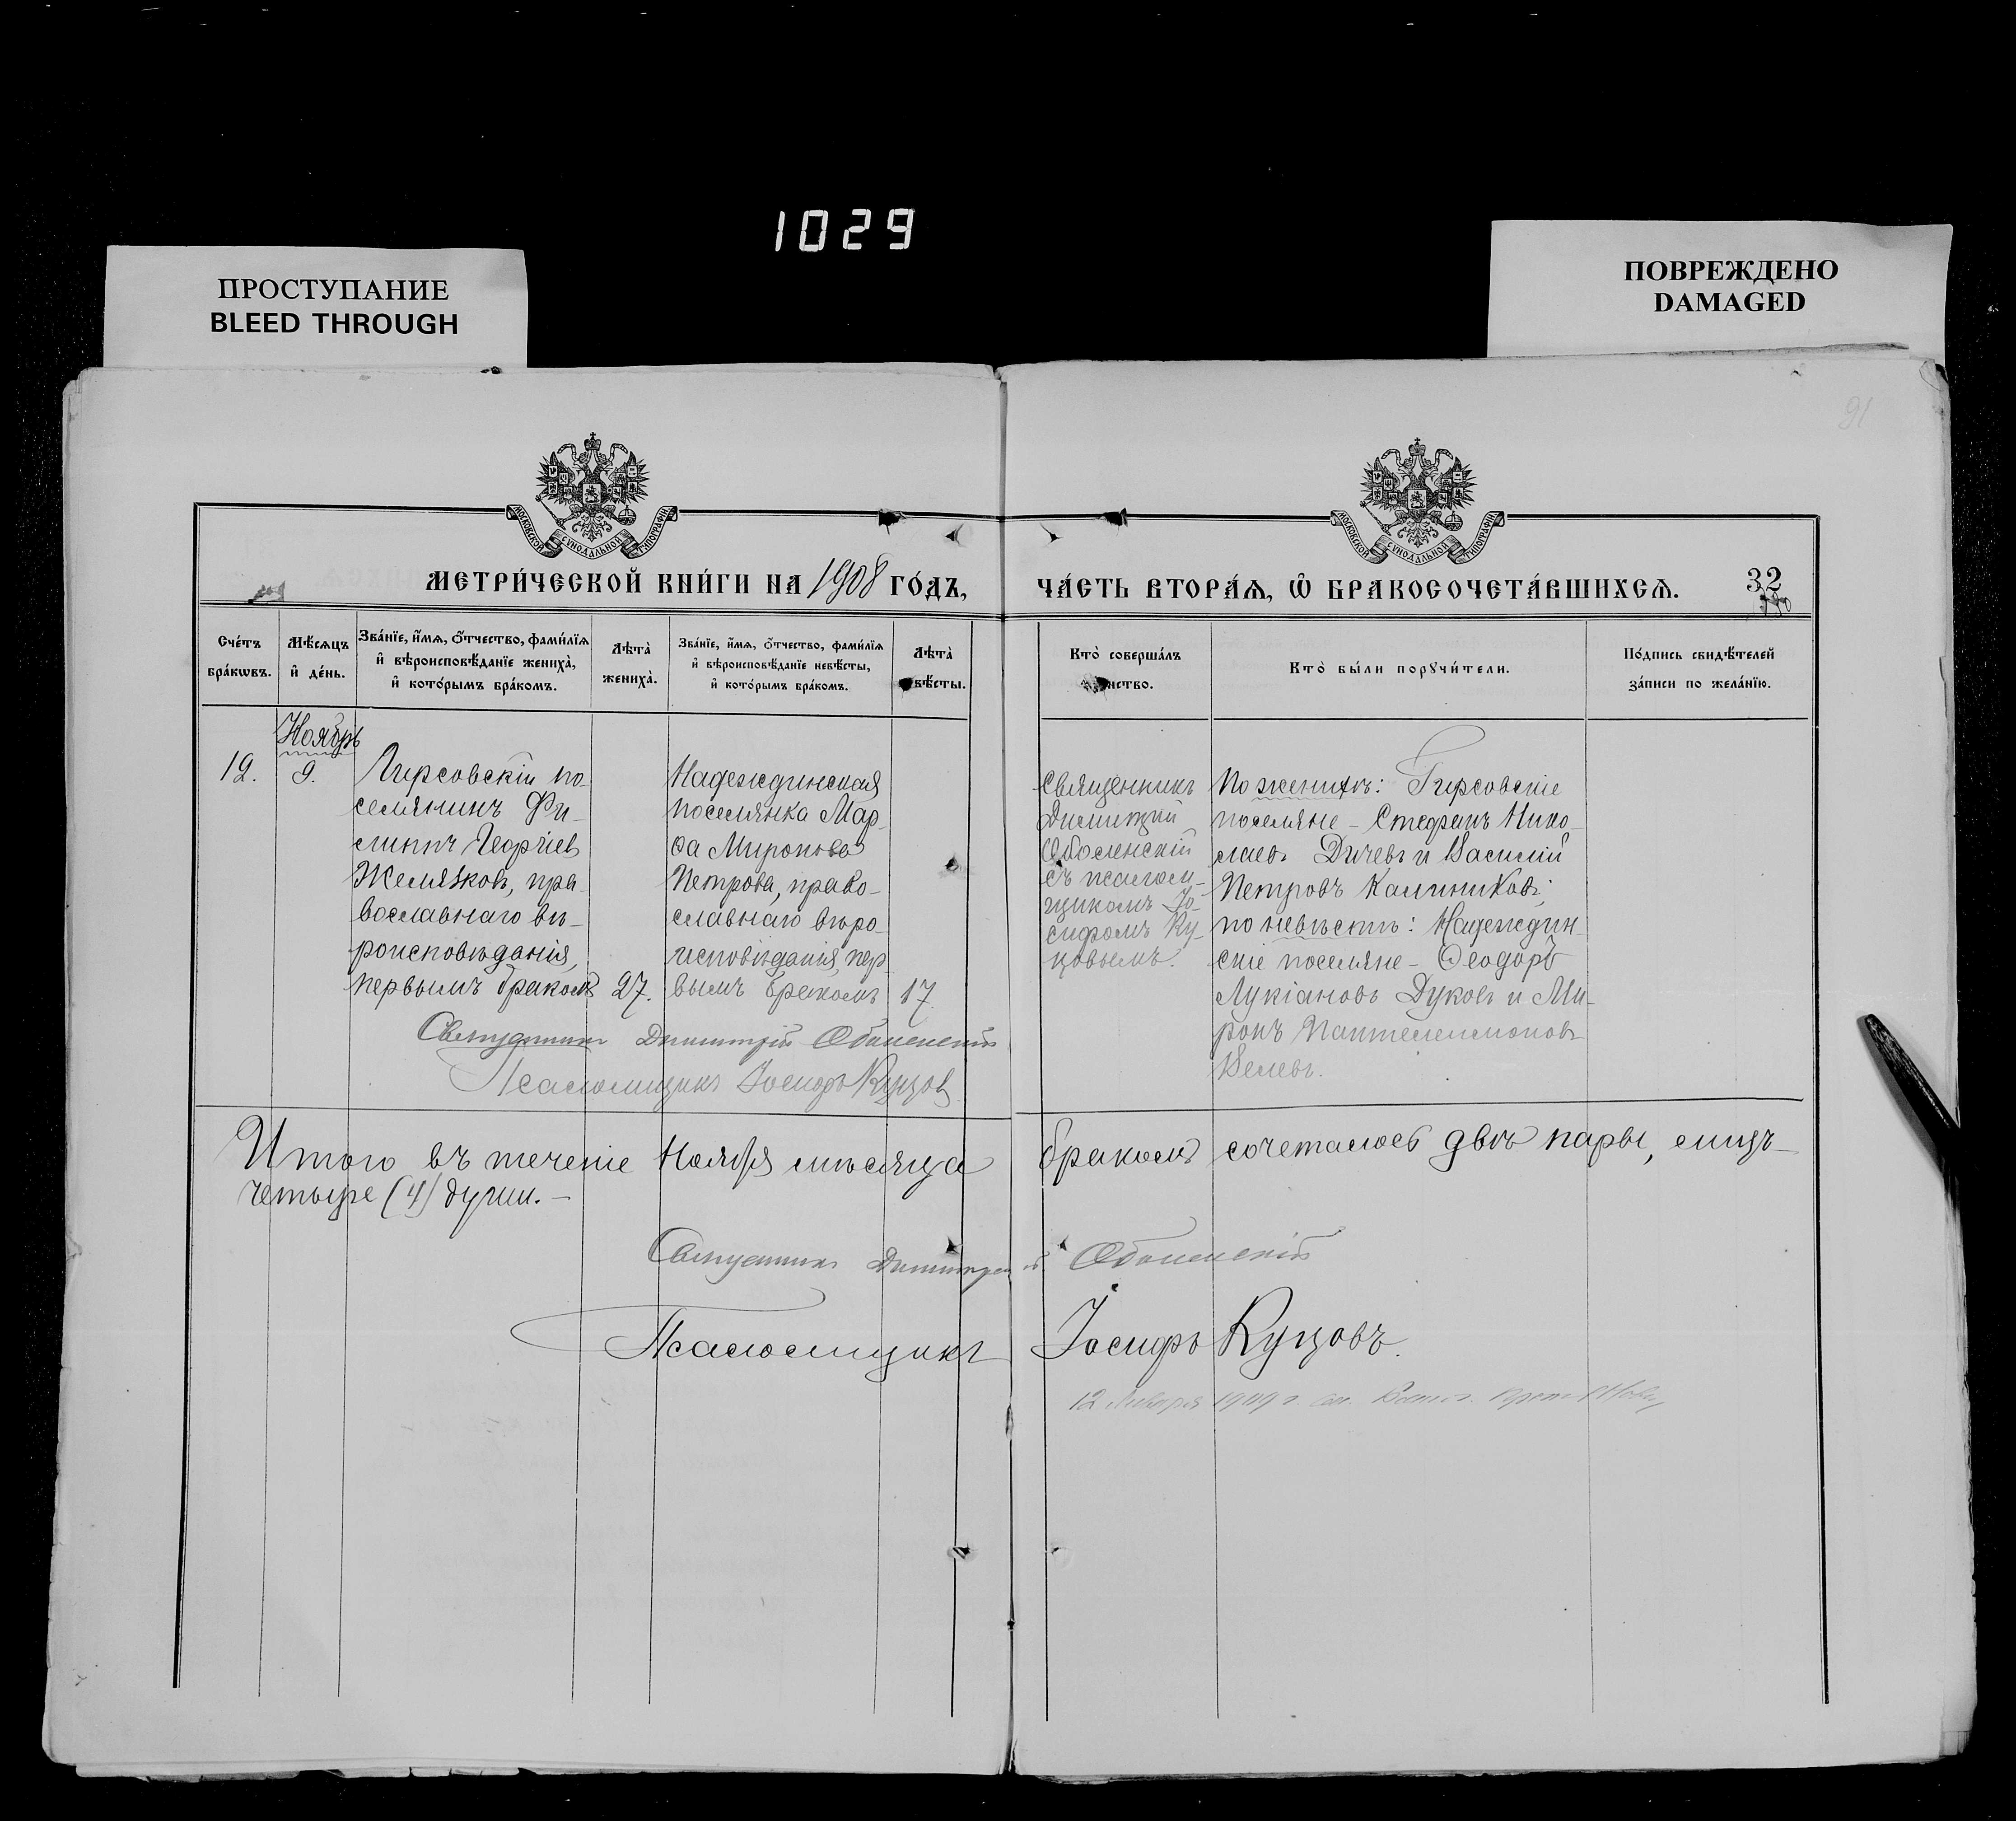 1029
ПРОСТУПАНИЕ
BLEED THROUGH
ПОВРЕЖДЕНО
DAMAGED
91
МОСКОВСКОЙ СѴНОДАЛЬНОЙ ТИПОГРАФІИ
МОСКОВСКОЙ СѴНОДАЛЬНОЙ ТИПОГРАФІИ
МЕТРИ́ЧЕСКОЙ КНИ́ГИ НА 1908 ГО́ДЪ,
ЧА́СТЬ ВТОРА́Ѧ, Ѽ БРАКОСОЧЕТА́ВШИХСѦ.
32
Сче́тъ бра́кѡвъ.
Мѣ́сѧцъ и҆ де́нь.
Зва́нїе, и҆́мѧ, ѻ҆́тчество, фами́лїѧ и҆ вѣроисповѣ́данїе жениха̀, и҆ кото́рымъ бра́комъ.
Лѣта̀ жениха̀.
Зва́нїе, и҆́мѧ, ѻ҆́тчество, фами́лїѧ и҆ вѣроисповѣ́данїе невѣ́сты, и҆ кото́рымъ бра́комъ.
Лѣта̀ вѣ́сты.
Кто̀ соверша́лъ нство.
Кто̀ бы́ли порꙋчи́тели.
По́дпись свидѣ́телей за́писи по жела́нїю.
Ноябрь
12.
9.
Гирсовскій по-
селянинъ Фи-
липпъ Георгіев
Желязковъ, пра-
вославнаго вѣ-
роисповѣданія,
первымъ бракомъ
27.
Надеждинская
поселянка Мар-
ѳа Миронова
Петрова, право-
славнаго вѣро-
исповѣданія, пер-
вымъ бракомъ
17.
Священникъ
Димитрій
Оболенскій
съ псалом-
щикомъ Іо-
сифомъ Ку-
цовымъ.
По женихѣ: Гирсовскіе
поселяне - Стефанъ Нико-
лаевъ Дичевъ и Василій
Петровъ Калинниковъ;
по невѣстѣ: Надеждин-
скіе поселяне - Ѳеодоръ
Лукіановъ Дуковъ и Ми-
ронъ Пантелеимоновъ
Велевъ.
Священникъ Димитрій Оболенскій
Псаломщикъ Іосифъ Куцовъ
Итого въ теченіе Ноября мѣсяца бракомъ сочеталось двѣ пары, лицъ -
четыре (4) души. -
Священникъ Димитрій Оболенскій
Псаломщикъ Іосифъ Куцовъ.
12 Января 1909 г.